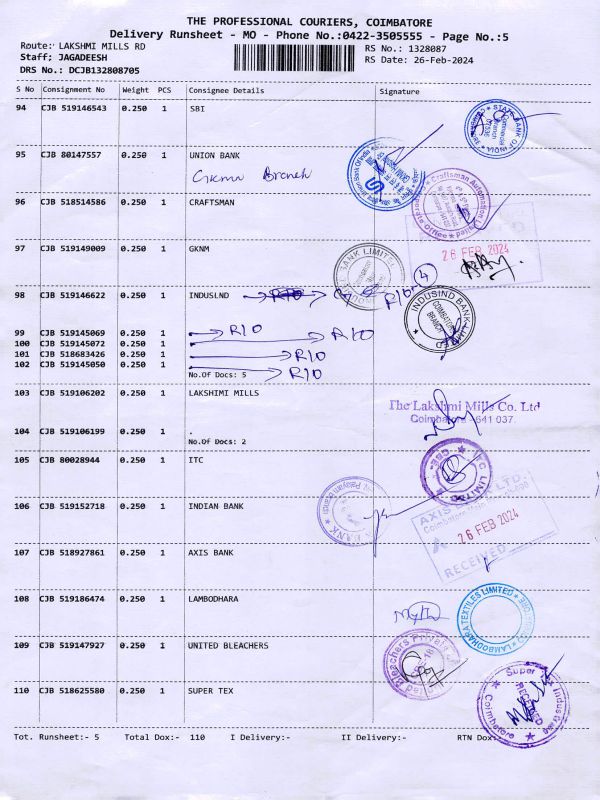 THE PROFESSIONAL COURIERS, COIMBATORE
Delivery Runsheet - MO - Phone No.:0422-3505555 - Page No.:5
Route: LAKSHMI MILLS RD RS No.: 1328087
Staff; JAGADEESH RS Date: 26-Feb-2024
DRS No.: DCJB132808705
S No Consignment No Weight PCS Consignee Details Signature
94 CJB 519146543 0.250 1 SBI
95 CJB 80147557 0.250 1 UNION BANK
Branch
96 CJB 518514586 0.250 1 CRAFTSMAN
97 CJB 519149009 0.250 1 GKNM
26 FEB 2024
BANK LIMITED
98 CJB 519146622 0.250 1 INDUSLND R10 R10 4
INDUSIND BANK
COIMBATORE
BRANCH
99 CJB 519145069 0.250 1 R10
100 CJB 519145072 0.250 1 R10
101 CJB 518683426 0.250 1 R10
102 CJB 519145050 0.250 1 R10
No.Of Docs: 5
103 CJB 519106202 0.250 1 LAKSHIMI MILLS
The Lakshmi Mills Co. Ltd
Coimbatore - 641 037.
104 CJB 519106199 0.250 1 .
No.Of Docs: 2
105 CJB 80028944 0.250 1 ITC
ITC LIMITED
106 CJB 519152718 0.250 1 INDIAN BANK
AXIS BANK LTD.
26 FEB 2024
RECEIVED
107 CJB 518927861 0.250 1 AXIS BANK
108 CJB 519186474 0.250 1 LAMBODHARA
LAMBODHARA TEXTILES LIMITED
109 CJB 519147927 0.250 1 UNITED BLEACHERS
Bleachers Private
110 CJB 518625580 0.250 1 SUPER TEX
Super Tex Industries
Coimbatore
Tot. Runsheet:- 5 Total Dox:- 110 I Delivery:- II Delivery:- RTN Dox:-